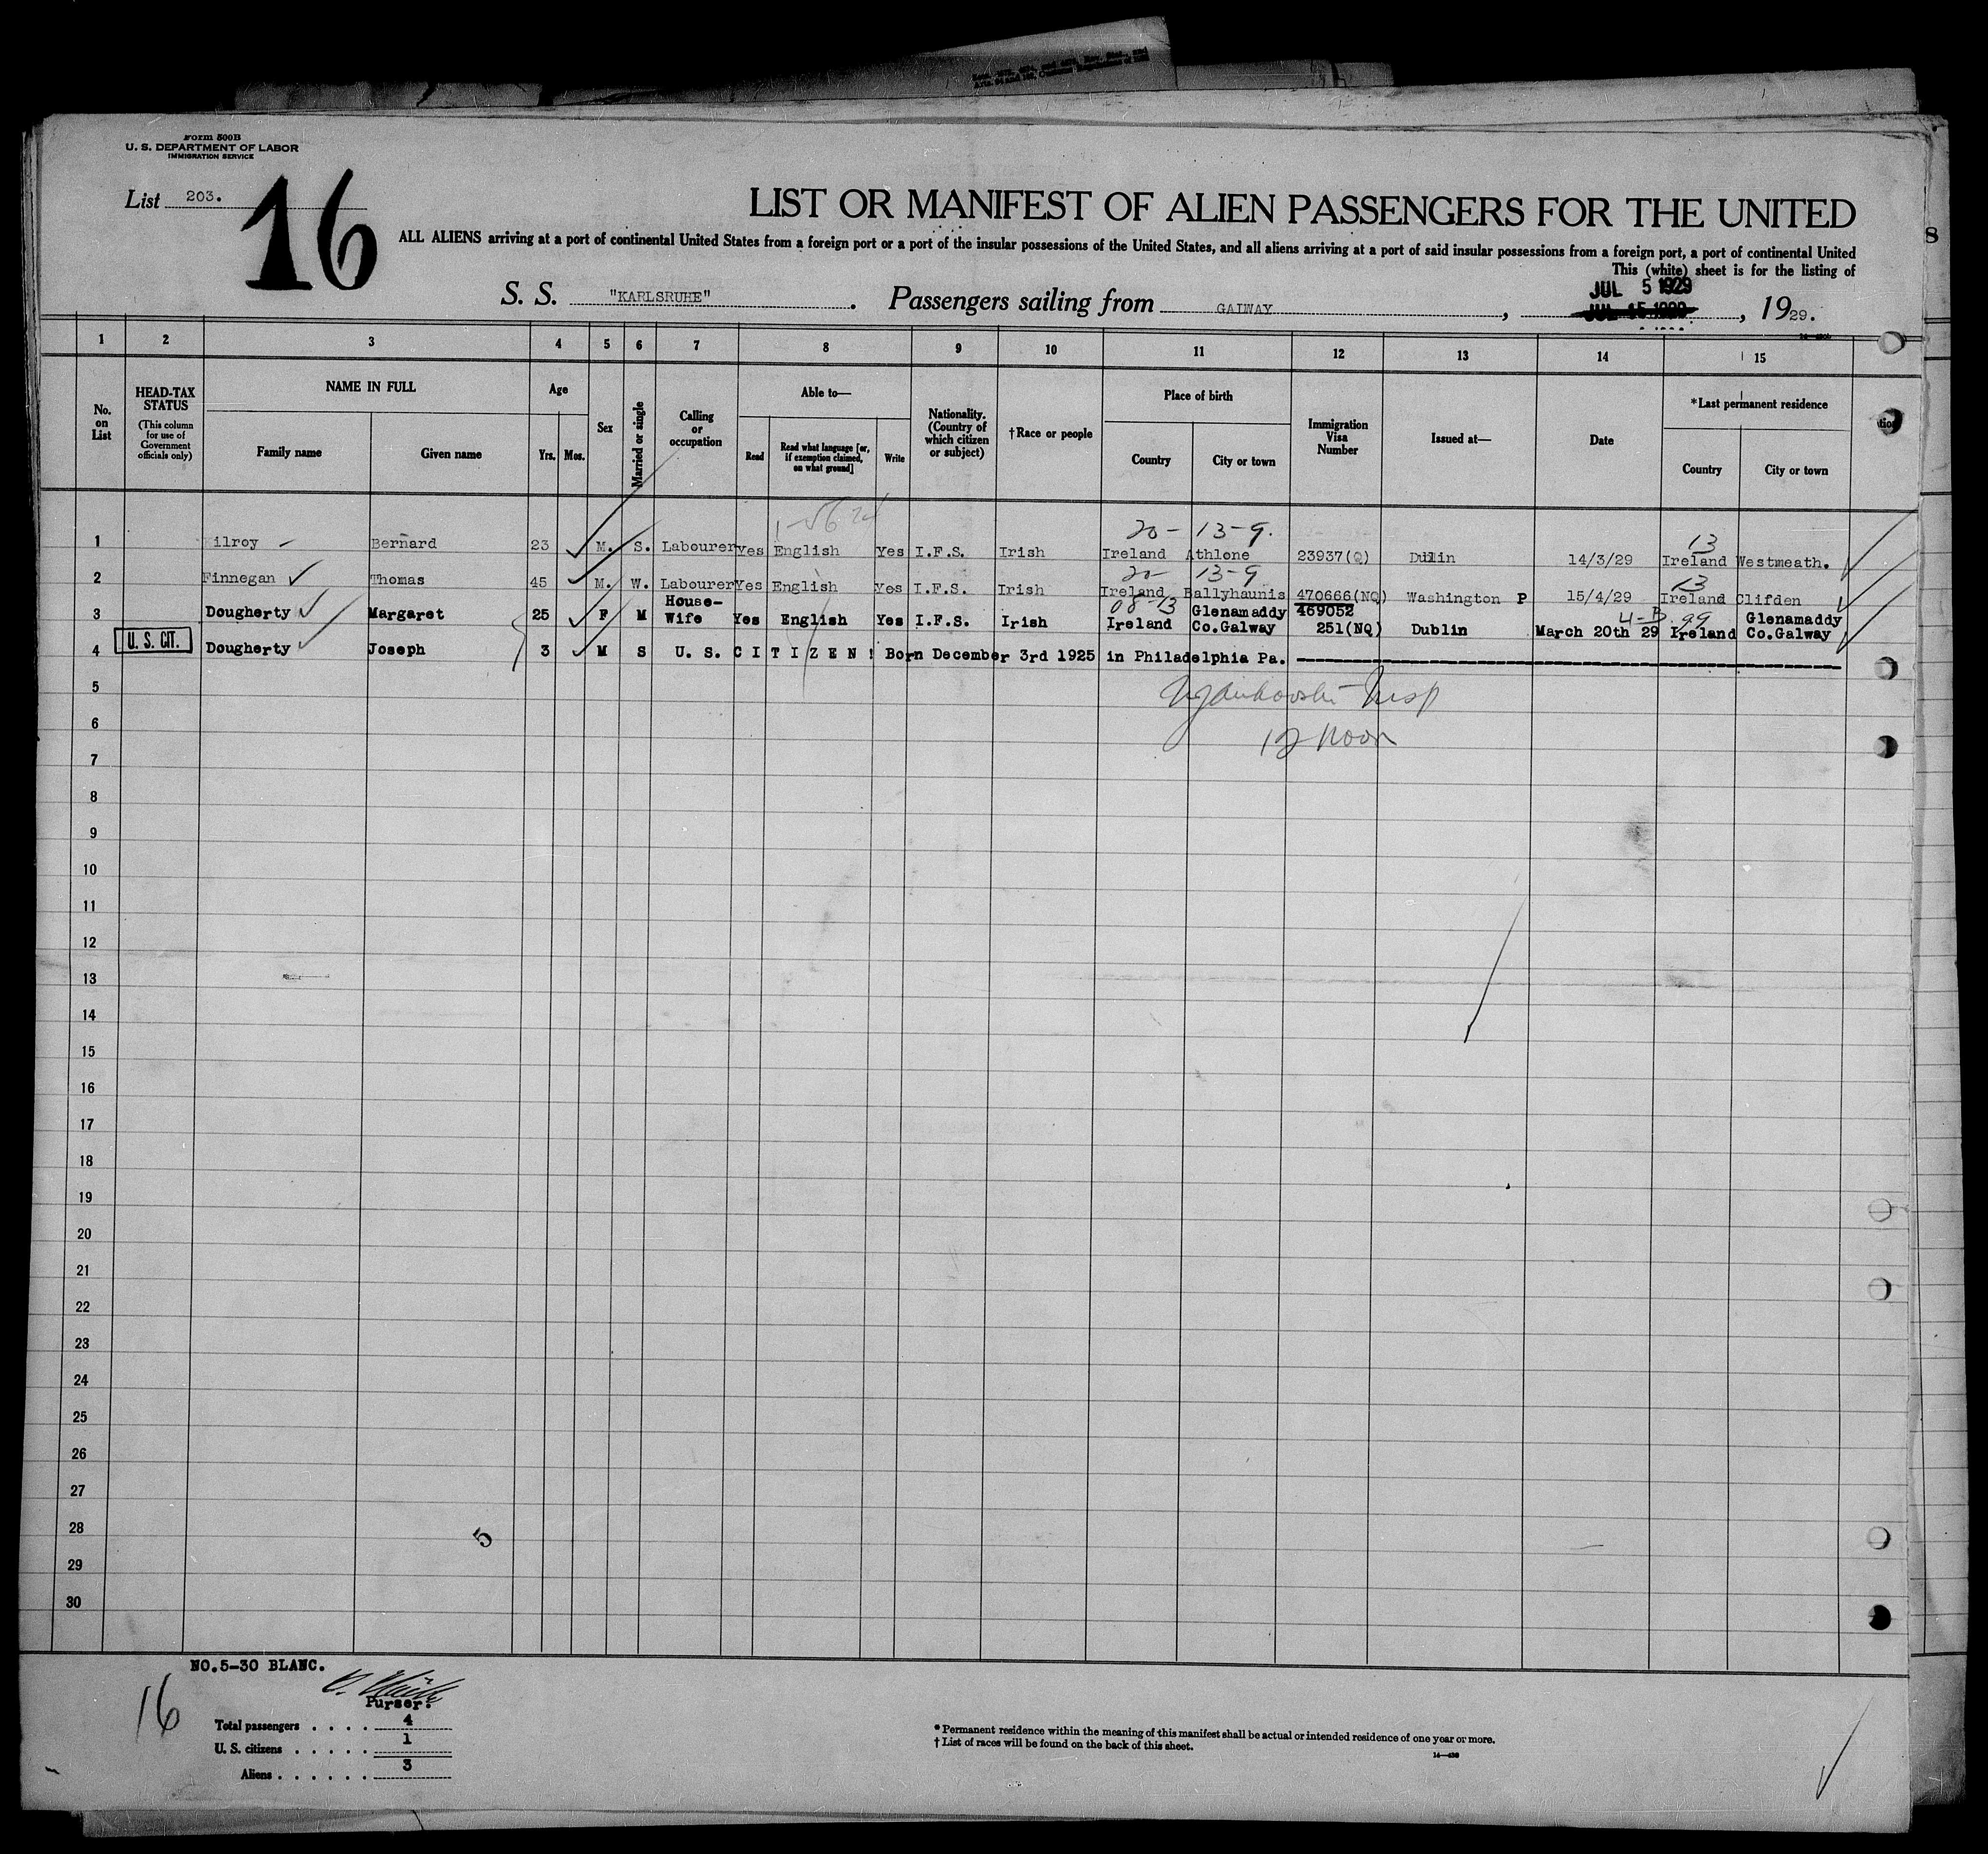 Form 500B
U. S. DEPARTMENT OF LABOR
IMMIGRATION SERVICE
List 203.
16
LIST OR MANIFEST OF ALIEN PASSENGERS FOR THE UNITED
ALL ALIENS arriving at a port of continental United States from a foreign port or a port of the insular possessions of the United States, and all aliens arriving at a port of said insular possessions from a foreign port, a port of continental United
This (white) sheet is for the listing of
S. S. "KARLSRUHE". Passengers sailing from GALWAY, JUL 5 1929, 1929.
1 2 3 4 5 6 7 8 9 10 11 12 13 14 15
No. on List
HEAD-TAX STATUS
(This column for use of Government officials only)
NAME IN FULL
Family name Given name
Age
Yrs. Mos.
Sex
Married or single
Calling or occupation
Able to—
Read
Read what language [or, if exemption claimed, on what ground]
Write
Nationality. (Country of which citizen or subject)
†Race or people
Place of birth
Country City or town
Immigration Visa Number
Issued at—
Date
*Last permanent residence
Country City or town
20- 13-9. 13
1 ilroy Bernard 23 M. S. Labourer Yes English Yes I.F.S. Irish Ireland Athlone 23937(Q) Dublin 14/3/29 Ireland Westmeath.
20- 13-9 13
2 Finnegan Thomas 45 M. W. Labourer Yes English Yes I.F.S. Irish Ireland Ballyhaunis 470666(NQ) Washington P 15/4/29 Ireland Clifden
08-13 469052 99
3 Dougherty Margaret 25 F M House-Wife Yes English Yes I.F.S. Irish Ireland Glenamaddy Co.Galway 251(NQ) Dublin March 20th 29 Ireland Glenamaddy Co.Galway
U. S. CIT.
4 Dougherty Joseph 3 M S U. S. C I T I Z E N ! Born December 3rd 1925 in Philadelphia Pa.
5
12 Noon
6
7
8
9
10
11
12
13
14
15
16
17
18
19
20
21
22
23
24
25
26
27
28
5
29
30
NO.5-30 BLANC.
16
Purser.
Total passengers . . . . 4
U. S. citizens . . . . . 1
Aliens . . . . . . 3
* Permanent residence within the meaning of this manifest shall be actual or intended residence of one year or more.
† List of races will be found on the back of this sheet.